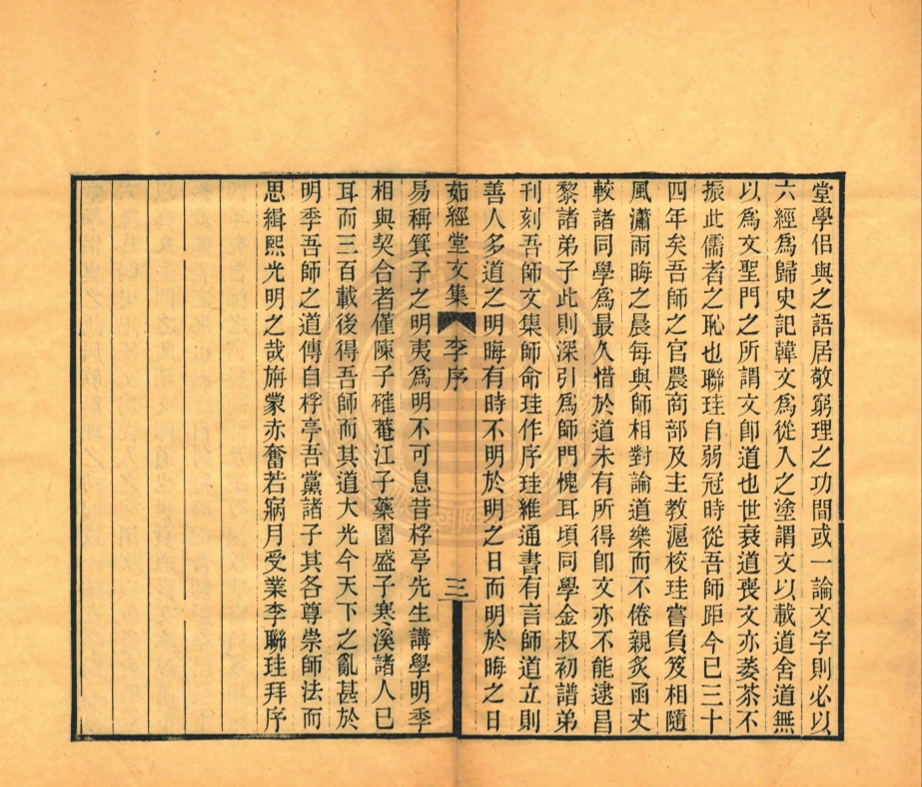 堂學侶與之語居敬窮理之功間或一論文字則必以
六經爲歸史記韓文爲從入之塗謂文以載道舍道無
以爲文聖門之所謂文卽道也世衰道喪文亦萎苶不
振此儒者之恥也聯珪自弱冠時從吾師距今已三十
四年矣吾師之官農商部及主教滬校珪嘗負笈相隨
風瀟雨晦之晨每與師相對論道樂而不倦親炙函丈
較諸同學爲最久惜於道未有所得卽文亦不能逮昌
黎諸弟子此則深引爲師門愧耳頃同學金叔初譜弟
刊刻吾師文集師命珪作序珪維通書有言師道立則
善人多道之明晦有時不明於明之日而明於晦之日
茹經堂文集 李序 三
易稱箕子之明夷爲明不可息昔桴亭先生講學明季
相與契合者僅陳子確菴江子藥園盛子寒溪諸人已
耳而三百載後得吾師而其道大光今天下之亂甚於
明季吾師之道傳自桴亭吾黨諸子其各尊崇師法而
思緝熙光明之哉旃蒙亦奮若寎月受業李聯珪拜序